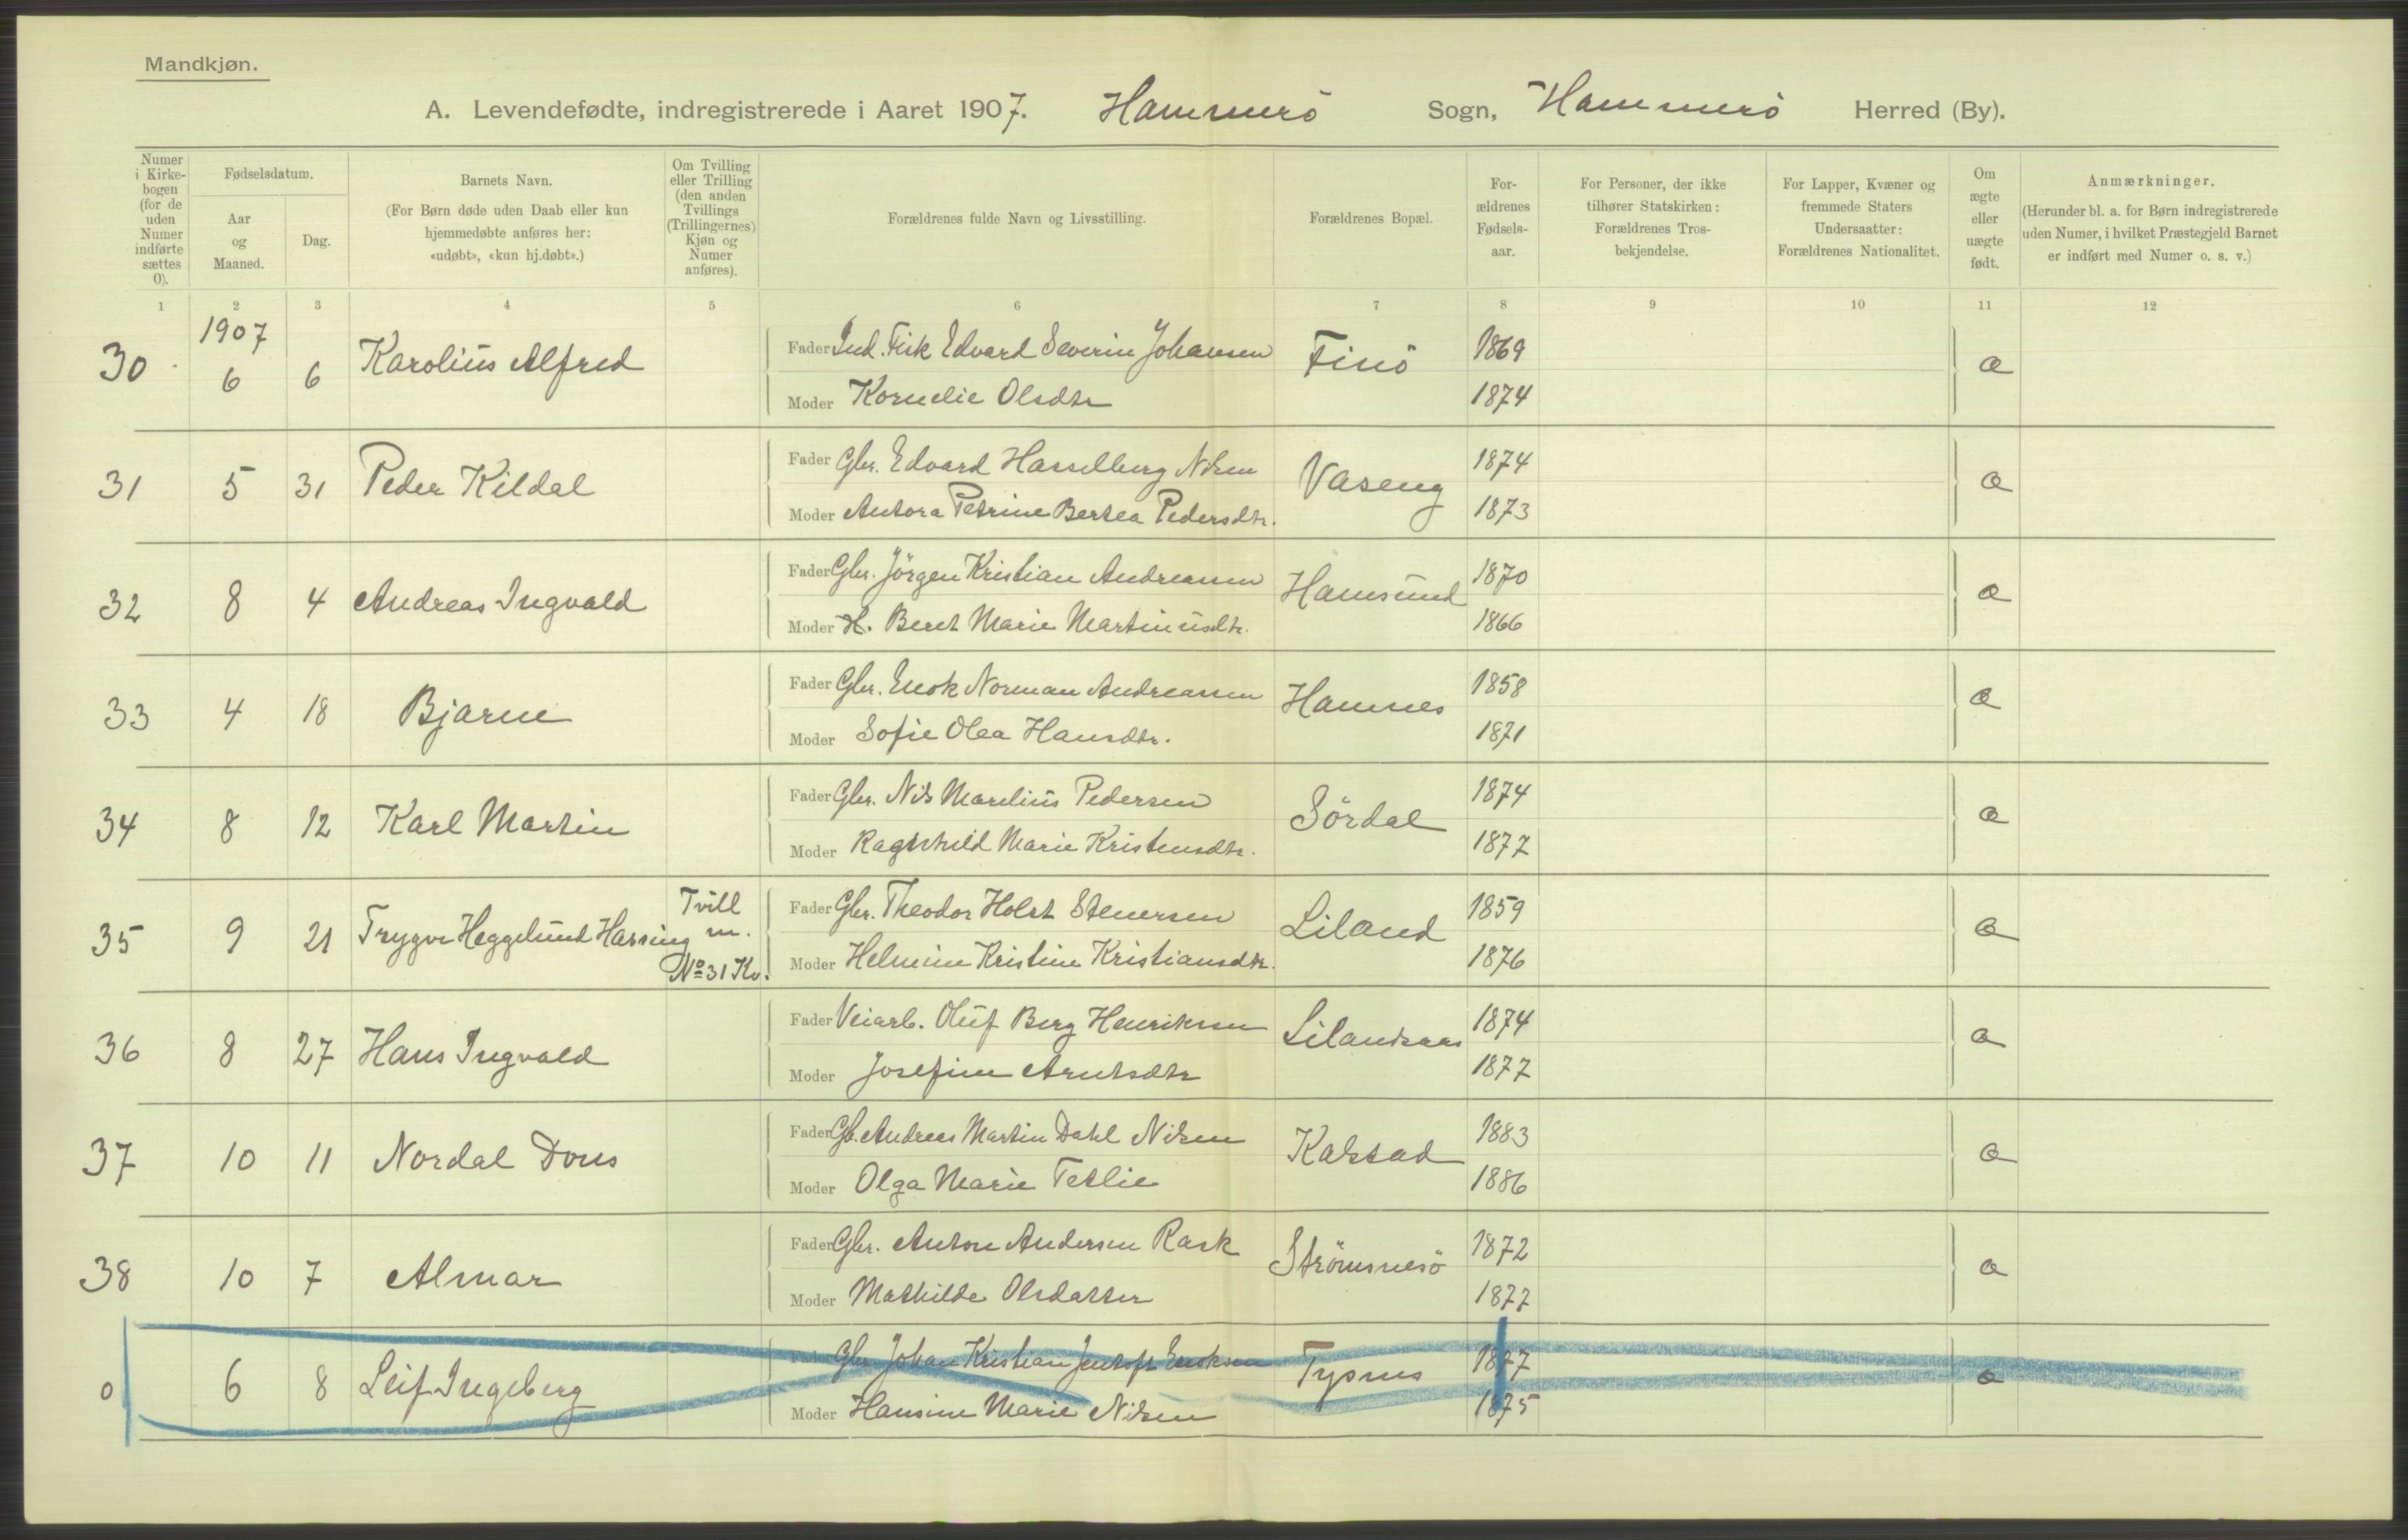 Mandkjøn.
A. Levendefødte, indregistrerede i Aaret 1907. Hammerö Sogn, Hammerö Herred (By).
Numer i Kirkebogen (for de uden Numer indførte sættes 0).
Fødselsdatum.
Aar og Maaned.
Dag.
Barnets Navn.
(For Børn døde uden Daab eller kun hjemmedøbte anføres her: «udøbt», «kun hj.døbt».)
Om Tvilling eller Trilling (den anden Tvillings (Trillingernes) Kjøn og Numer anføres).
Forældrenes fulde Navn og Livsstilling.
Forældrenes Bopæl.
Forældrenes Fødselsaar.
For Personer, der ikke tilhører Statskirken: Forældrenes Trosbekjendelse.
For Lapper, Kvæner og fremmede Staters Undersaatter: Forældrenes Nationalitet.
Om ægte eller uægte født.
Anmærkninger.
(Herunder bl. a. for Børn indregistrerede uden Numer, i hvilket Præstegjeld Barnet er indført med Numer o. s. v.)
1 2 3 4 5 6 7 8 9 10 11 12
1907
30 6 6 Karolius Alfred Fader Ind. Fisk Edvard Severin Johansen Finö 1869 a
Moder Kornelie Olsdtr 1874
31 5 31 Peder Kildal Fader Gbr. Edvard Hasselberg Nilsen Vaseng 1874 a
Moder Antora Petrine Bertea Pedersdtr. 1873
32 8 4 Andreas Ingvald Fader Gbr. Jörgen Kristian Andreassen Hamsund 1870 a
Moder H. Beret Marie Martinusdtr. 1866
33 4 18 Bjarne Fader Gbr. Enok Norman Andreassen Hamnes 1858 a
Moder Sofie Olea Hansdtr. 1871
34 8 12 Karl Martin Fader Gbr. Nils Marelius Pedersen Sördal 1874 a
Moder Ragnhild Marie Kristensdtr. 1877
35 9 21 Trygve Heggelund Hassing Tvill m. No 31 Kv. Fader Gbr. Theodor Holst Stenersen Liland 1859 a
Moder Helmine Kristine Kristiansdtr. 1876
36 8 27 Hans Ingvald Fader Veiarb. Oluf Berg Henriksen Lilandsaas 1874 a
Moder Josefine Arntsdtr 1877
37 10 11 Nordal Dons Fader Gb. Andreas Martin Dahl Nilsen Kalstad 1883 a
Moder Olga Marie Tetlie 1886
38 10 7 Almar Fader Gbr. Anton Andersen Rask Strömsnesö 1872 a
Moder Mathilde Olsdatter 1877
0 6 8 Leif Ingeberg Fader Gbr Johan Kristian Jentoft Enoksen Tysnes 1877 a
Moder Hansine Marie Nilsen 1875